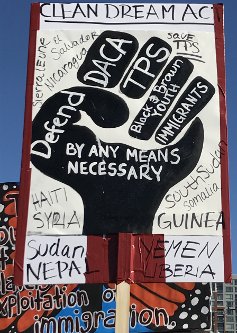 CLEAN DREAM ACT
Sierra Leone
El Salvador
Nicaragua
SAVE
TPS
Defend
DACA
TPS
Black & Brown
Youth
IMMIGRANTS
BY ANY MEANS
NECESSARY
HAITI
SYRIA
South Sudan
Somalia
GUINEA
Sudan
NEPAL
YEMEN
LIBERIA
exploitation of
immigration.